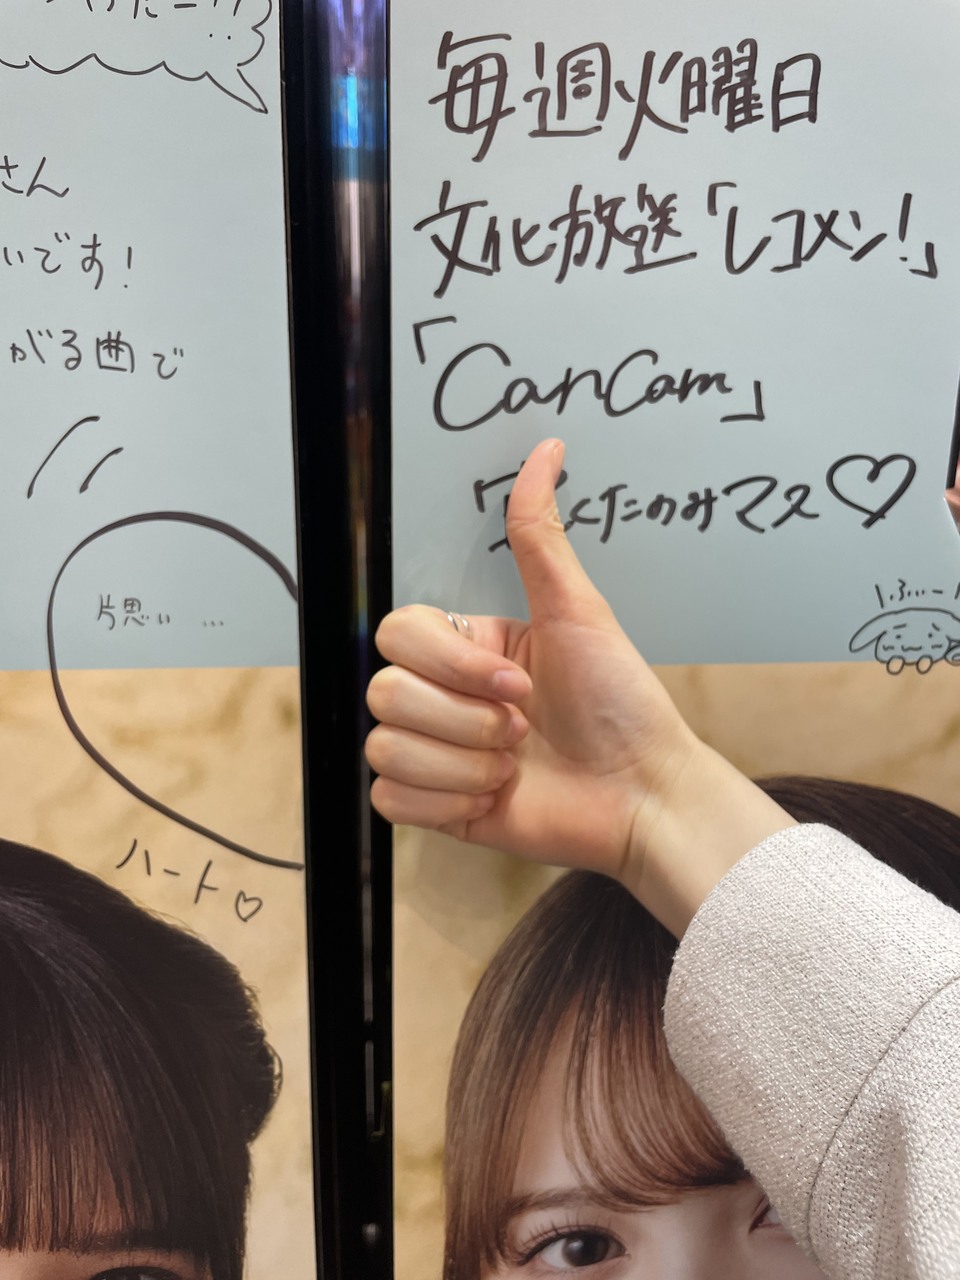 さん
いです！
がる曲で
片思い …
ハート♡
毎週火曜日
文化放送「レコメン！」
「CanCam」
くたのみマス♡